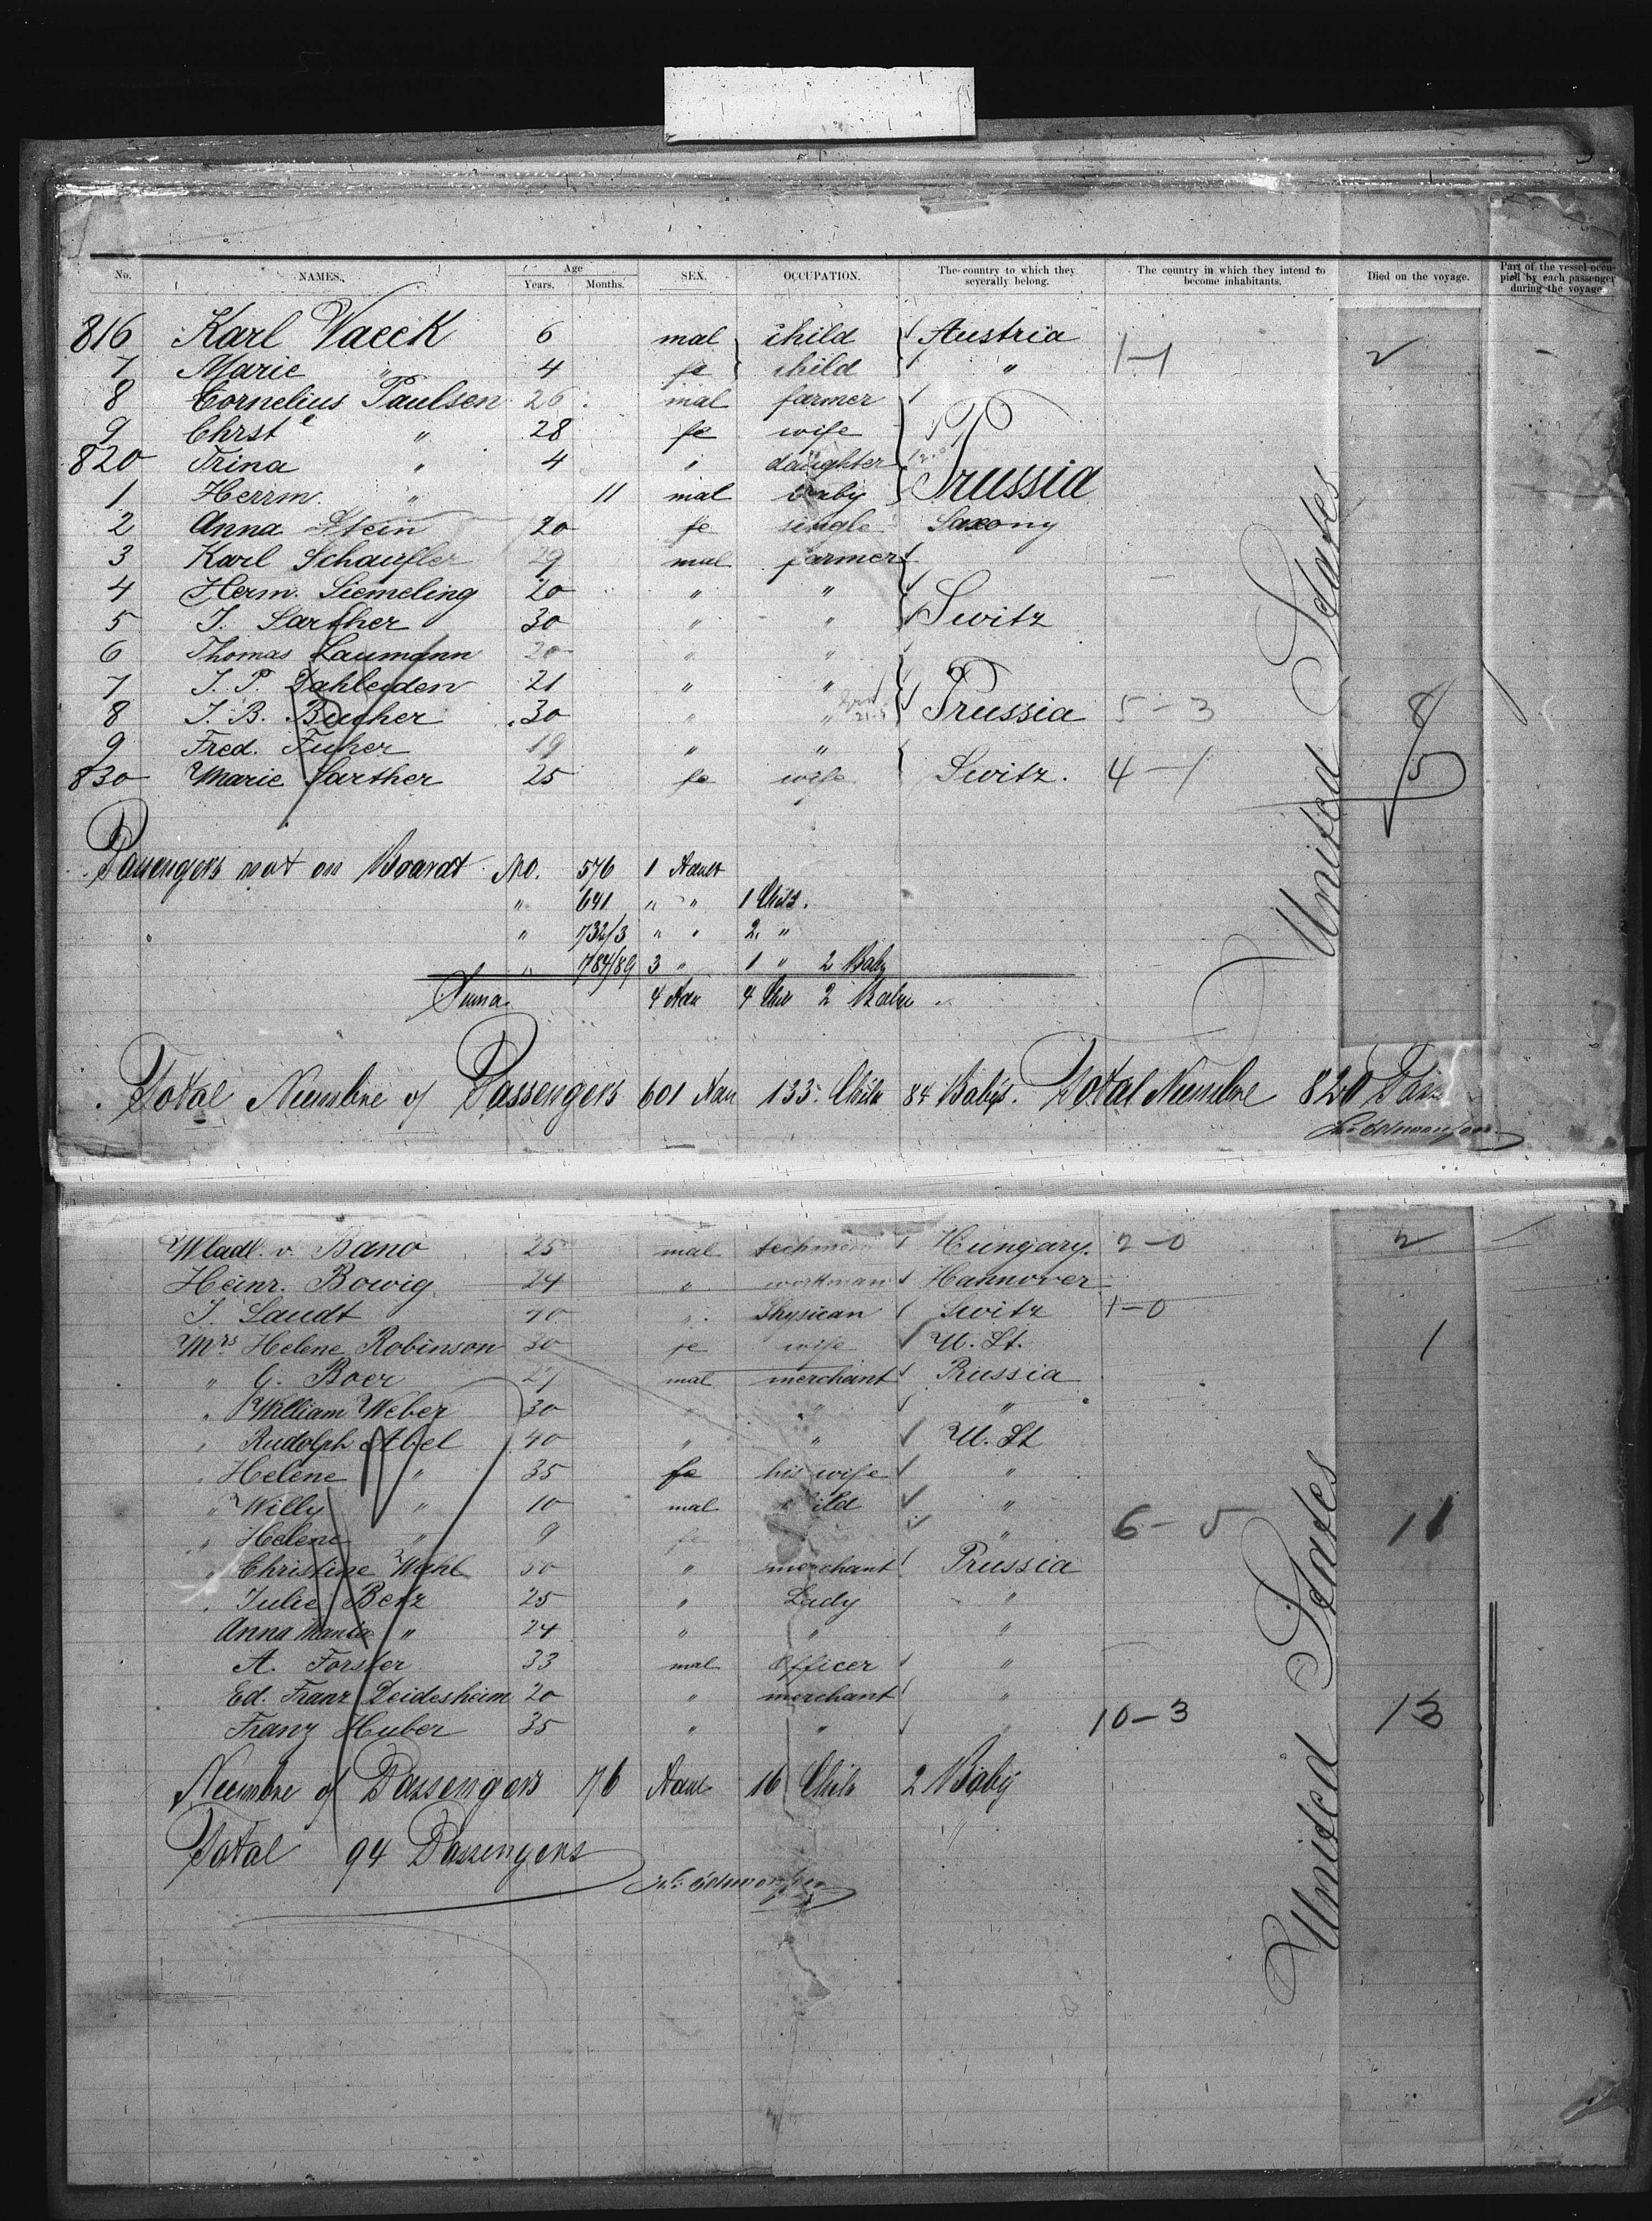 No. NAMES. Age Years. Months. SEX. OCCUPATION. The country to which they severally belong. The country in which they intend to become inhabitants. Died on the voyage. Part of the vessel occupied by each passenger during the voyage.
816 Karl Vaeck 6 mal child Austria
7 Marie " 4 fe child " 1-1 2
8 Cornelius Paulsen 26 mal farmer
9 Chrste " 28 fe wife
820 Trina " 4 " daughter
1 Herrm. " 11 mal baby Prussia
2 Anna Stein 20 fe single Saxony
3 Karl Schaufler 29 mal farmer
4 Herm. Siemeling 20 " "
5 J. Sarther 30 " " Switz
6 Thomas Laumann 20 " "
7 J. P. Dahleiden 21 " "
8 J. B. Bucher 30 " " Prussia 5-3 8
9 Fred. Fuher 19 " "
830 Marie Sarther 25 fe wife Switz. 4-1 5
United States
Passengers not on Boardt No. 576 1 Adult
" 641 " " 1 Child.
" 732/3 " " 2 "
" 784/89 3 " 1 " 2 Baby
Suma 4 Adu 4 Chil 2 Baby
Total Numbre of Passengers 601 Adu 133 Childr 84 Babys. Total Numbre 820 Pass
Wladl. v. Bano 25 mal Hungary. 2-0 2
Heinr. Bowig 24 " workman Hannover
J. Laudt 40 " Physican Switz 1-0
Mrs Helene Robinson 30 fe wife U. St. 1
" G. Boer 27 mal merchant Russia
" William Weber 30 " " "
" Rudolph Abel 40 " " U. St
" Helene " 35 fe his wife "
" Willy " 10 mal child "
" Helene " 9 fe " " 6-5 11
" Christine Wahl 50 " merchant Prussia
" Julie Benz 25 " Lady "
Anna Maria " 24 " " "
A. Forster 33 mal Officer "
Ed. Franz Deidesheim 20 " merchant "
Franz Huber 35 " " " 10-3 13
United States
Numbre of Passengers 76 Adul 16 Childr 2 Baby
Total 94 Passengers